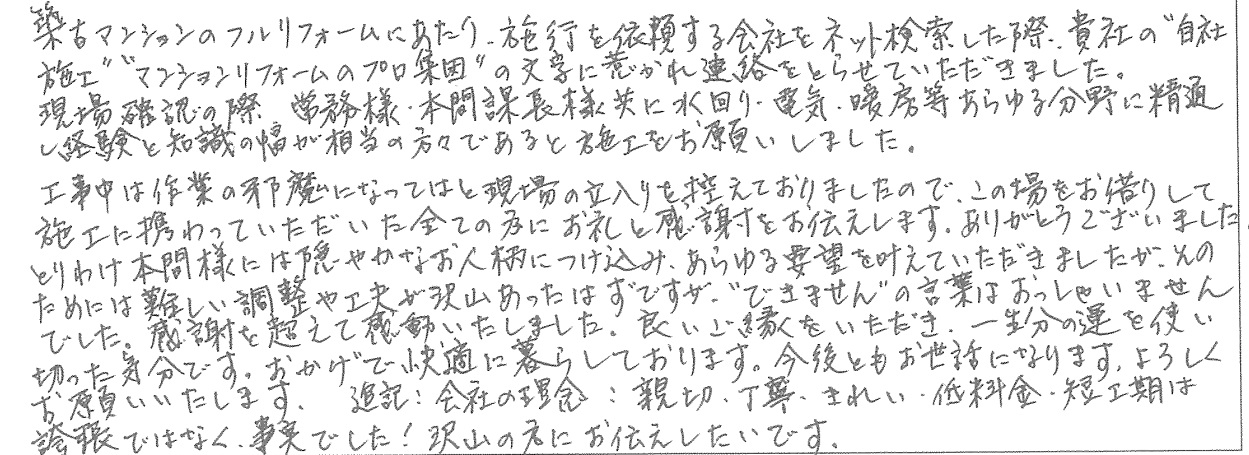 築古マンションのフルリフォームにあたり、施行を依頼する会社をネット検索した際、貴社の"自社
施工""マンションリフォームのプロ集団"の文字に惹かれ連絡をとらせていただきました。
現場確認の際 常務様・本間課長様共に水回り・電気・暖房等あらゆる分野に精通
し経験と知識の幅が相当の方々であると施工をお願いしました。
工事中は作業の邪魔になってはと現場の立入りを控えておりましたので、この場をお借りして
施工に携わっていただいた全ての方にお礼と感謝をお伝えします。ありがとうございました。
とりわけ本間様には穏やかなお人柄につけ込み、あらゆる要望を叶えていただきましたが、その
ためには難しい調整や工夫が沢山あったはずですが、"できません"の言葉はおっしゃいません
でした。感謝を超えて感動いたしました。良いご縁をいただき、一生分の運を使い
切った気分です。おかげで快適に暮らしております。今後ともお世話になります。よろしく
お願いいたします。 追記：会社の理念：親切・丁寧・きれい・低料金・短工期は
誇張ではなく、事実でした！沢山の方にお伝えしたいです。